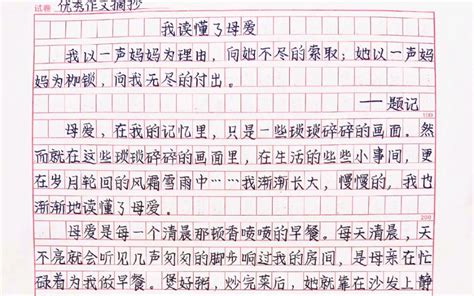 试卷 优秀作文摘抄
我读懂了母爱
我以一声妈妈为理由，向她不尽的索取；她以一声妈妈
为枷锁，向我无尽的付出。
——题记
100
母爱，在我的记忆里，只是一些琐琐碎碎的画面。然
而就在这些琐琐碎碎的画面里，在生活的些些小事间，更
在岁月轮回的风霜雪雨中……我渐渐长大，慢慢的，我也
渐渐地读懂了母爱。
200
母爱是每一个清晨那顿香喷喷的早餐。每天清晨，天
不亮就会听见几声匆匆的脚步响过我的房间，是母亲在忙
碌着为我做早餐。煲好粥，炒完菜后，她就靠在沙发上静